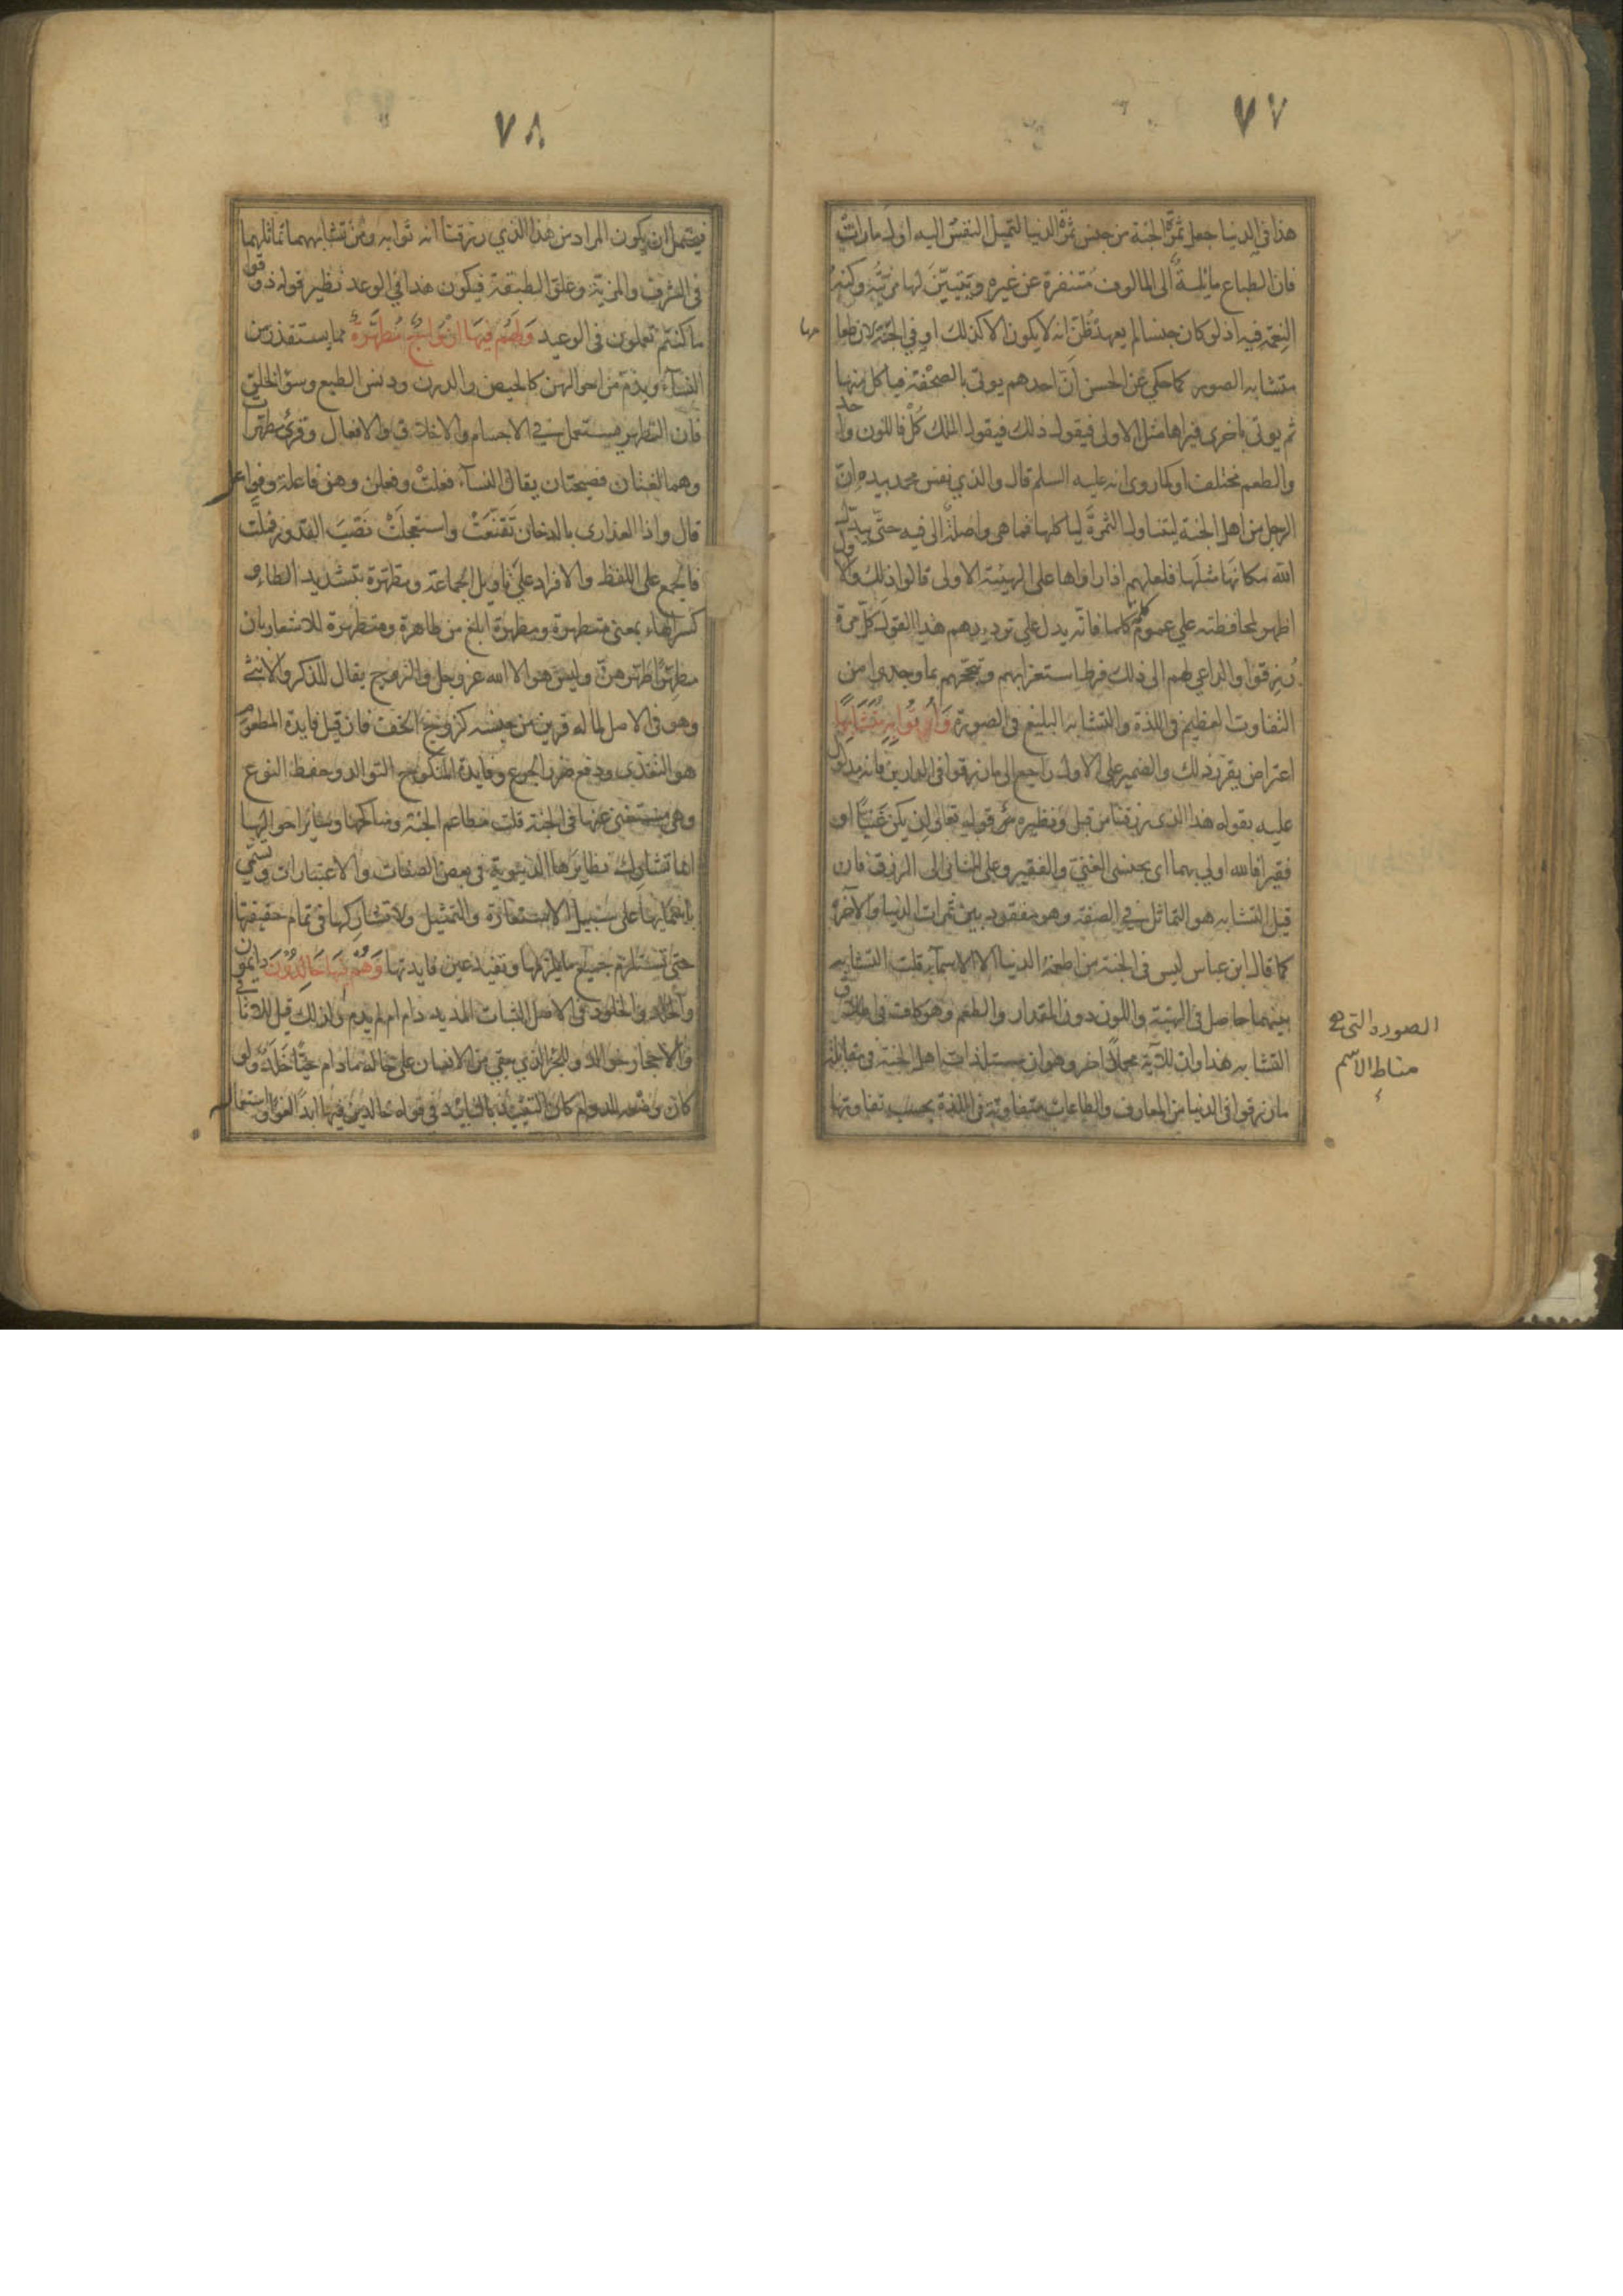 ٧٧
هذا في الدنيا جعل ثمرة الجنة من جنس ثمرة الدنيا لتميل النفس اليه اول ما رات
فان الطباع مائلة الى المالوف متنفرة عن غيره ويتبين لها مزيته وكنه
النعمة فيه اذ لو كان جنسا لم يعهد ظن انه لا يكون الا كذلك او في الجنة لان طعا
مها
متشابه الصور كما حكي عن الحسن ان احدهم يوتى بالصحفة فياكل منها
ثم يوتى باخرى فيراها مثل الاولى فيقول ذلك فيقول الملك كل فاللون واحد
والطعم مختلف او كما روى انه عليه السلم قال والذي نفس محمد بيده ان
الرجل من اهل الجنة ليتناول الثمرة لياكلها فما هي واصلة الى فيه حتى يبدل
الله مكانها مثلها فلعلهم اذا راوها على الهيئة الاولى قالوا ذلك والاول
اظهر لمحافظته على عموم كلما فانه يدل على ترديدهم هذا القول كل مرة
رزقوا والداعي لهم الى ذلك فرط استغرابهم وتبجحهم بما وجدوا من
التفاوت العظيم في اللذة والتشابه البليغ في الصورة وَاُتُوا بِهِ مُتَشَابِهًا
اعتراض يقرر ذلك والضمير على الاول راجع الى ما رزقوا في الدارين فانه مدلول
عليه بقوله هذا الذي رزقنا من قبل ونظيره قوله تعالى ان يكن غنيا او
فقيرا فالله اولى بهما اي بجنسي الغني والفقير وعلى الثاني الى الرزق فان
قيل التشابه هو التماثل في الصفة وهو مفقود بين ثمرات الدنيا والاخرة
كما قال ابن عباس ليس في الجنة من اطعمة الدنيا الا الاسماء قلت التشابه
بينهما حاصل في الهيئة واللون دون المقدار والطعم وهو كاف في اطلاق
الصورة التي هي
مناط الاسم
التشابه هذا وان للاية محملا اخر وهو ان مستلذات اهل الجنة في مقابلة
ما رزقوا في الدنيا من المعارف والطاعات متفاوتة في اللذة بحسب تفاوتها
٧٨
فيحتمل ان يكون المراد من هذا الذي رزقنا انه ثوابه ومن تشابههما تماثلهما
في الشرف والمزية وعلو الطبقة فيكون هذا في الوعد نظير قوله ذوقوا
ما كنتم تعملون في الوعيد وَلَهُمْ فِيهَا اَزْوَاجٌ مُطَهَّرَةٌ مما يستقذر من
النساء ويذم من احوالهن كالحيض والدرن ودنس الطبع وسوء الخلق
فان التطهير يستعمل في الاجسام والاخلاق والافعال وقرئ مطهرات
وهما لغتان فصيحتان يقال النساء فعلت وفعلن وهن فاعلة وفواعل
قال واذا العذارى بالدخان تقنعت واستعجلت نصب القدور فملت
فالجمع على اللفظ والافراد على تاويل الجماعة ومطهرة بتشديد الطاء و
كسر الهاء بمعنى متطهرة ومطهرة ابلغ من طاهرة ومتطهرة للاشعار بان
مطهرا طهرهن وليس هو الا الله عز وجل والزوج يقال للذكر والانثى
وهو في الاصل لما له قرين من جنسه كزوج الخف فان قيل فايدة المطعوم
هو التغذي ودفع ضرر الجوع وفايدة المنكوح التوالد وحفظ النوع
وهي مستغنى عنها في الجنة قلت مطاعم الجنة ومناكحها وسائر احوالها
انما تشارك نظايرها الدنيوية في بعض الصفات والاعتبارات وتسمى
باسمائها على سبيل الاستعارة والتمثيل ولا تشاركها في تمام حقيقتها
حتى تستلزم جميع ما يلزمها وتفيد عين فايدتها وَهُمْ فِيهَا خَالِدُوْنَ دايمون
والخلد والخلود في الاصل الثبات المديد دام ام لم يدم ولذلك قيل للاثافي
والاحجار خوالد وللجزء الذي يبقى من الانسان على حاله ما دام حيا خلد ولو
كان وضعه للدوام كان التقييد بالتابيد في قوله خالدين فيها ابدا لغوا واستعمال